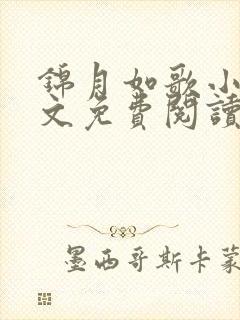 錦月如歌小
文免費閱讀
墨西哥斯卡蒙